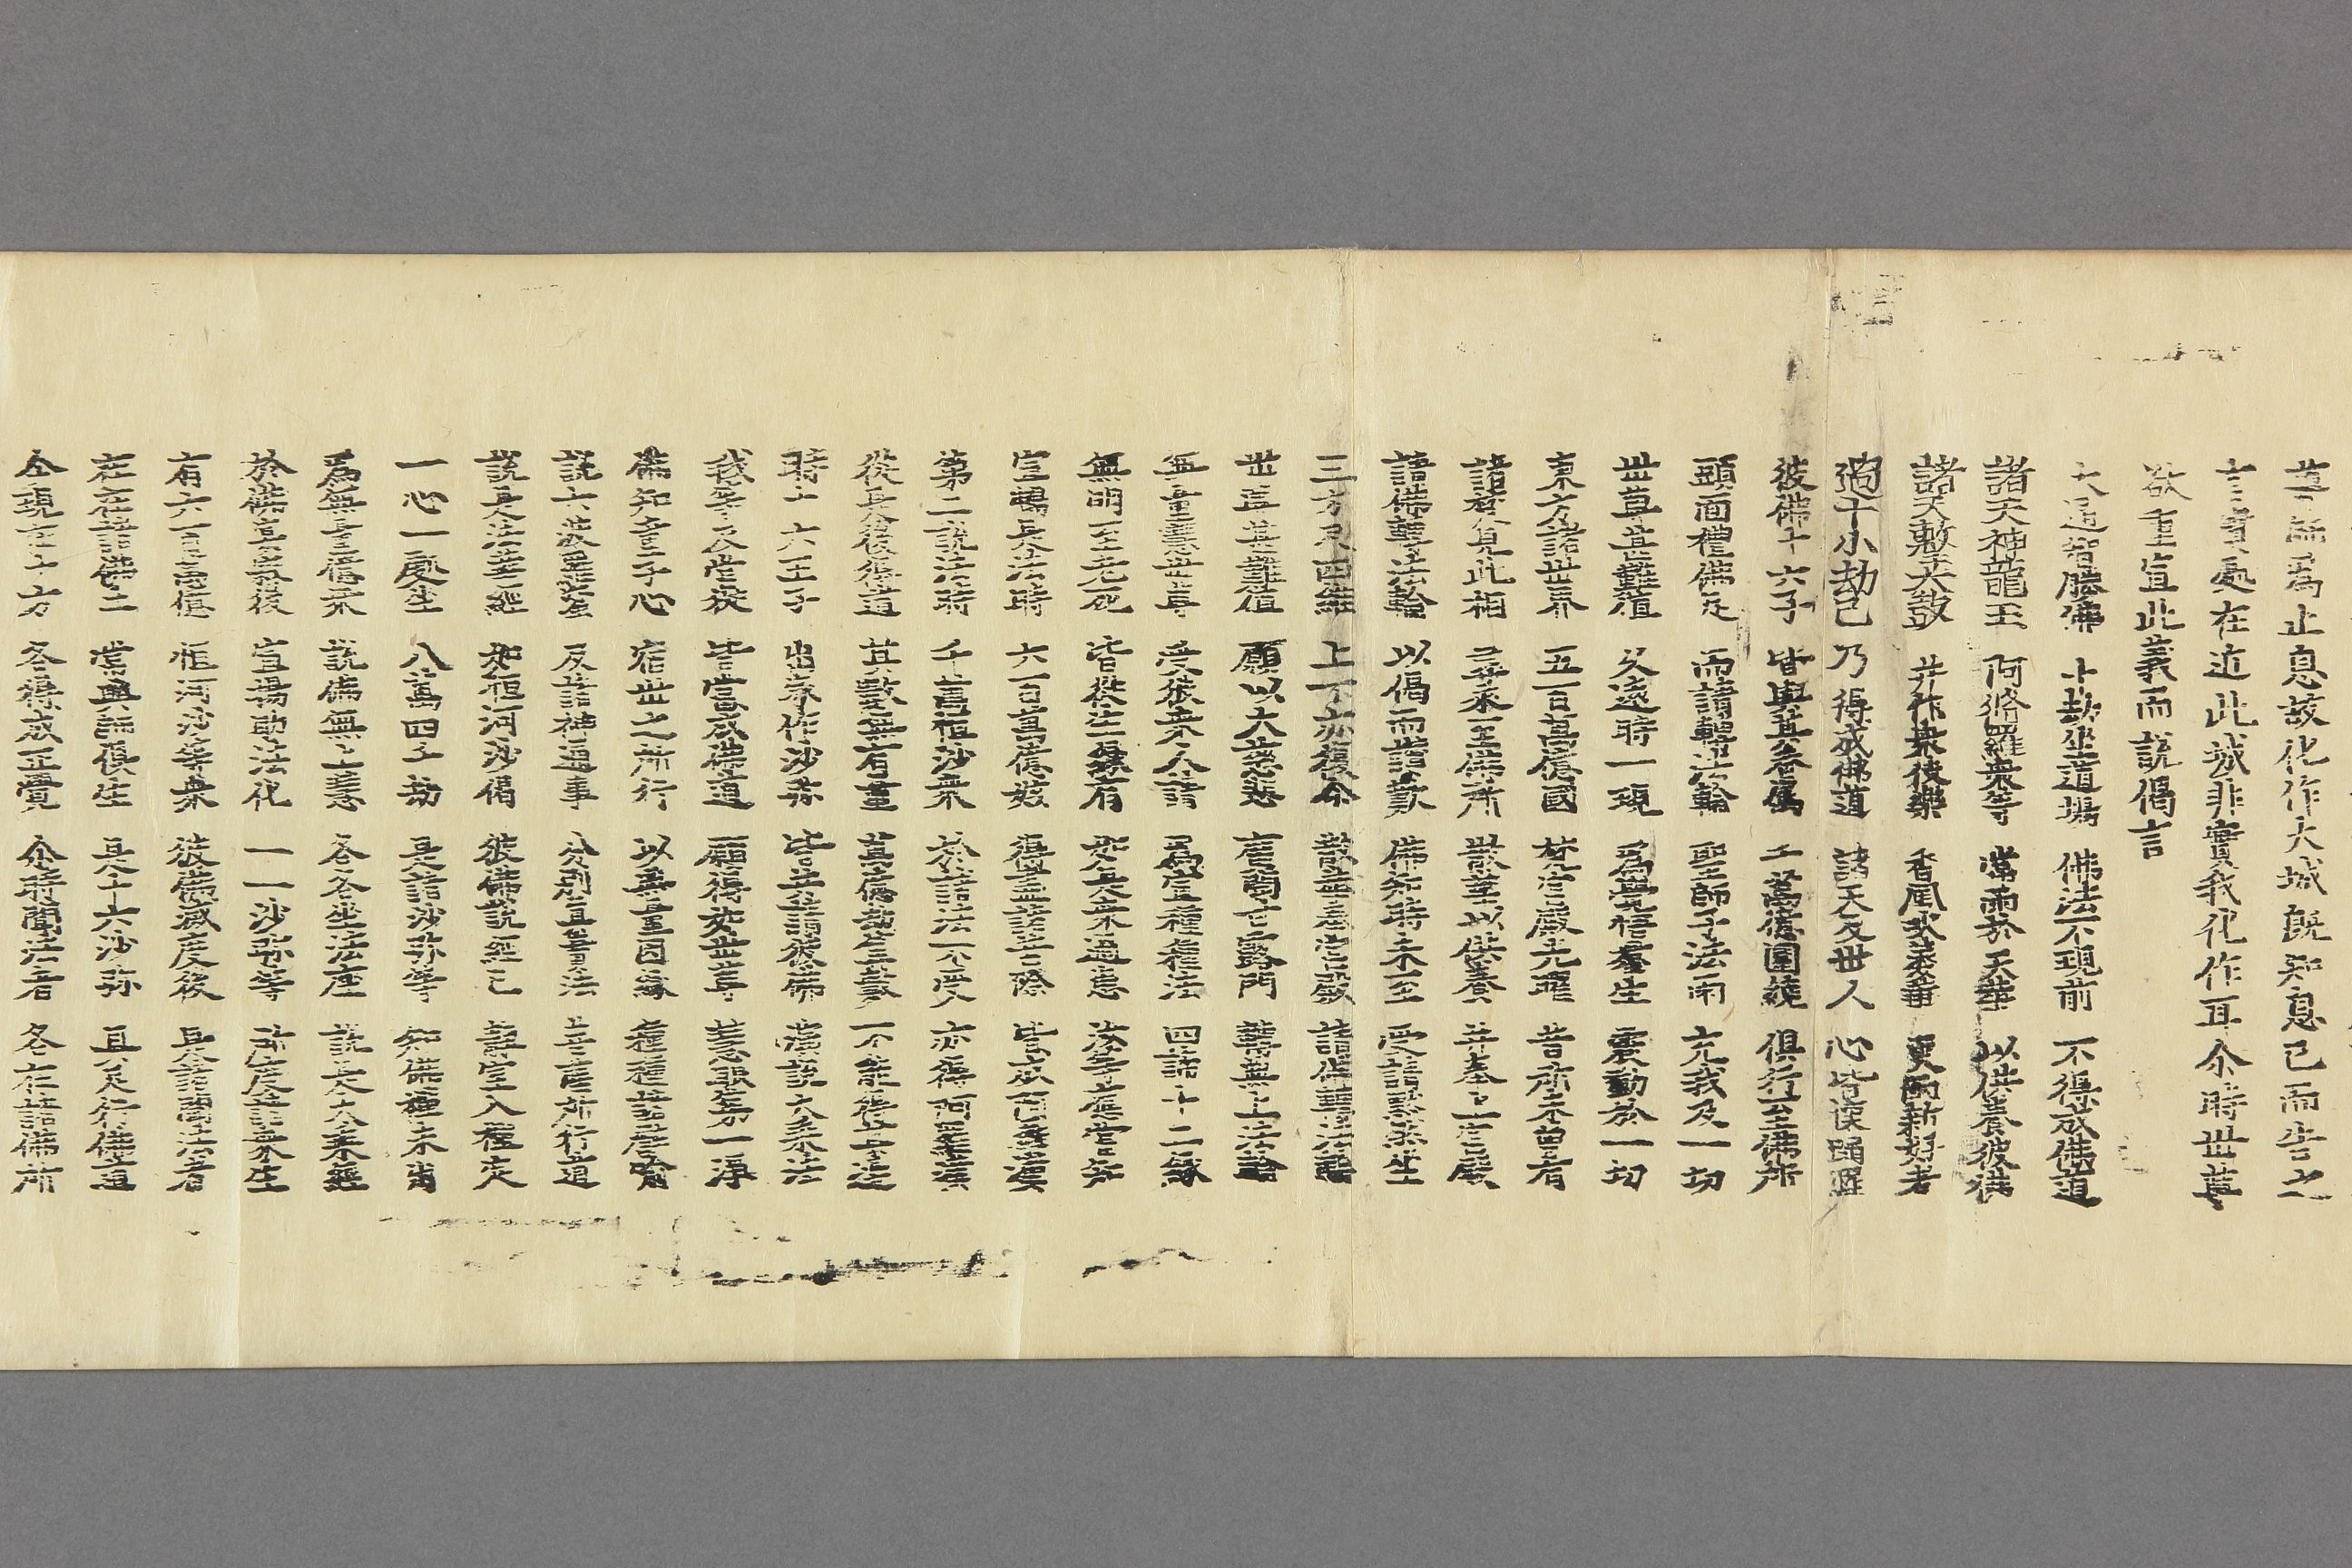 導師爲止息故化作大城既知息已而告之
言寶處在近此城非實我化作耳尒時世尊
欲重宣此義而說偈言
大通智勝佛 十劫坐道場 佛法不現前 不得成佛道
諸天神龍王 阿脩羅衆等 常雨於天華 以供養彼佛
諸天擊天鼓 并作衆伎樂 香風吹萎華 更雨新好者
過十小劫已 乃得成佛道 諸天及世人 心皆懷踊躍
彼佛十六子 皆與其眷屬 千萬億圍繞 俱行至佛所
頭面禮佛足 而請轉法輪 聖師子法雨 充我及一切
世尊甚難值 久遠時一現 爲覺悟羣生 震動於一切
東方諸世界 五百萬億國 梵宮殿光曜 昔所未曾有
諸梵見此相 尋來至佛所 散華以供養 并奉上宮殿
請佛轉法輪 以偈而讚歎 佛知時未至 受請默然坐
三方及四維 上下亦復尒 散華奉宮殿 請佛轉法輪
世尊甚難值 願以大慈悲 廣開甘露門 轉無上法輪
無量慧世尊 受彼衆人請 爲宣種種法 四諦十二緣
無明至老死 皆從生緣有 如是衆過患 汝等應當知
宣暢是法時 六百萬億姟 得盡諸苦際 皆成阿羅漢
第二說法時 千萬恒沙衆 於諸法不受 亦得阿羅漢
從是後得道 其數無有量 萬億劫筭數 不能得其邊
時十六王子 出家作沙弥 皆共請彼佛 演說大乘法
我等及營從 皆當成佛道 願得如世尊 慧眼第一淨
佛知童子心 宿世之所行 以無量因緣 種種諸譬喻
說六波羅蜜 及諸神通事 分別真實法 菩薩所行道
說是法華經 如恒河沙偈 彼佛說經已 靜室入禪定
一心一處坐 八萬四千劫 是諸沙弥等 知佛禪未出
爲無量億衆 說佛無上慧 各各坐法座 說是大乘經
於佛宴寂後 宣揚助法化 一一沙弥等 所度諸衆生
有六百萬億 恒河沙等衆 彼佛滅度後 是諸聞法者
在在諸佛土 常與師俱生 是十六沙弥 具足行佛道
今現在十方 各得成正覺 尒時聞法者 各在諸佛所